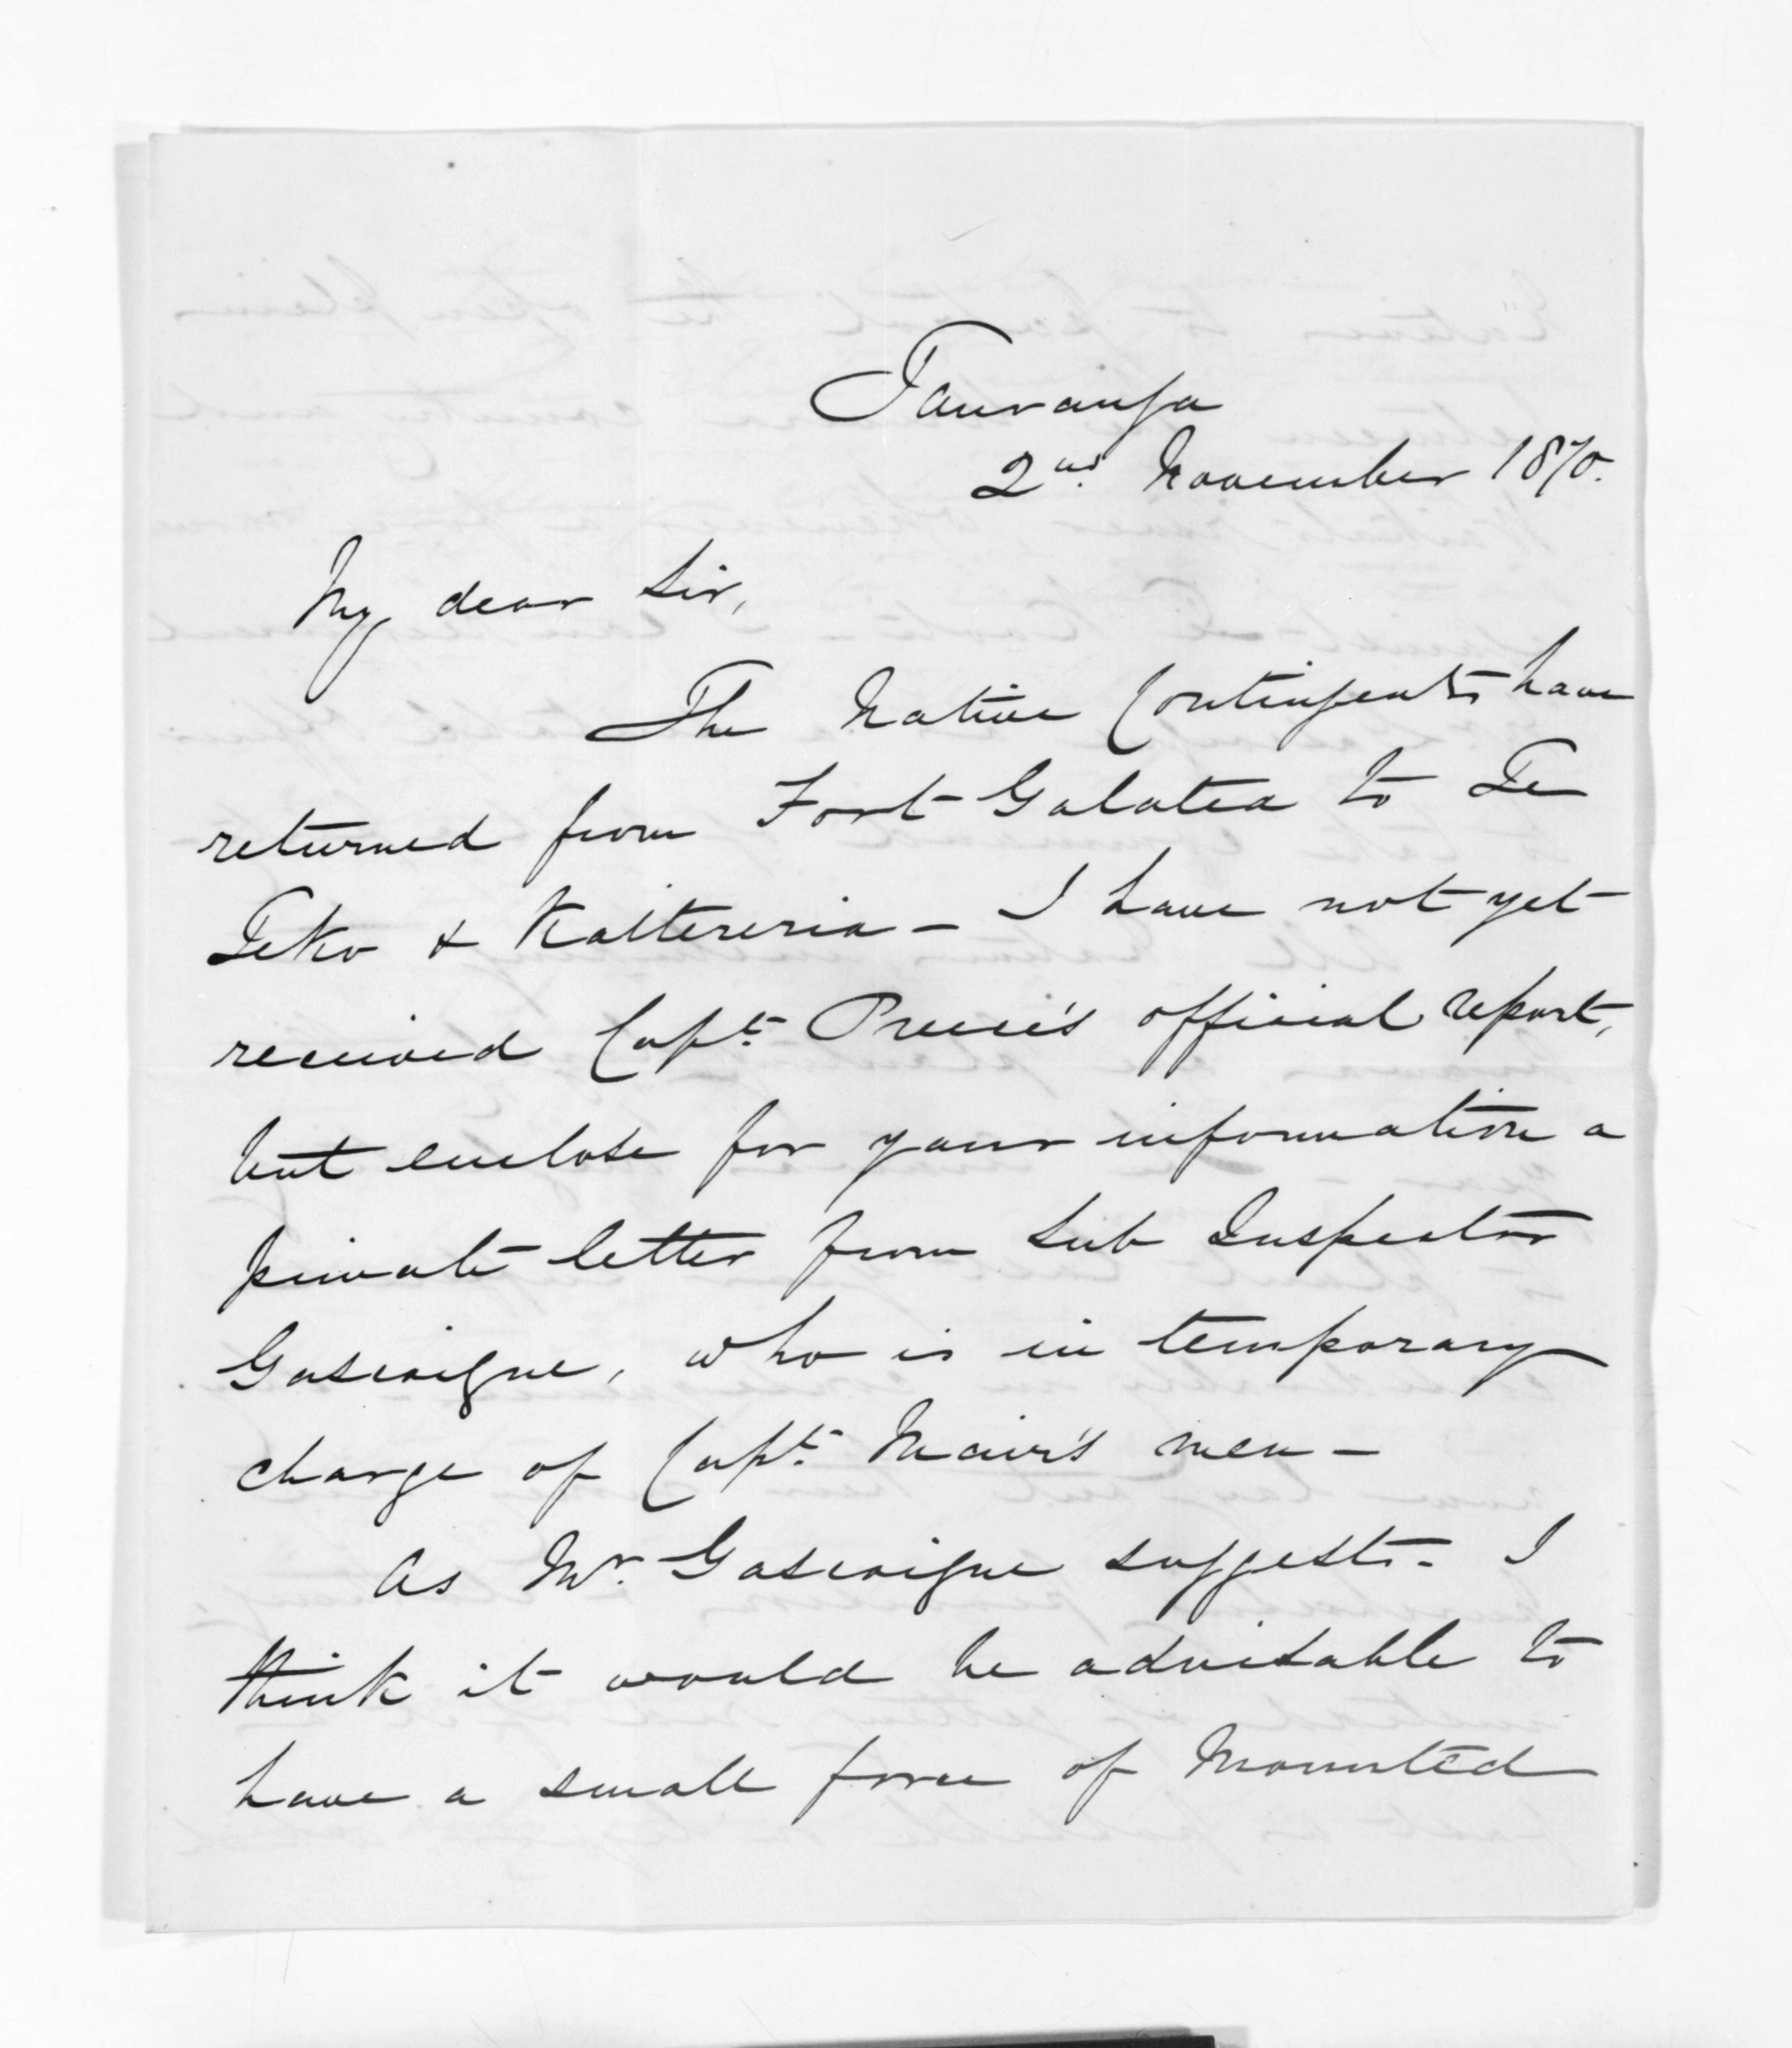 Tauranga
2nd. November 1870.
My dear Sir,
The Native Contingents have
returned from Fort Galatea to Te
Teko & Kaiteriria - I have not yet
received Capt. Preece's official report,
but enclose for your information a
private letter from Sub Inspector
Gascoigne, who is in temporary
charge of Capt. Mair's men -
As Mr. Gascoigne suggests - I
think it would be advisable to
have a small force of Mounted